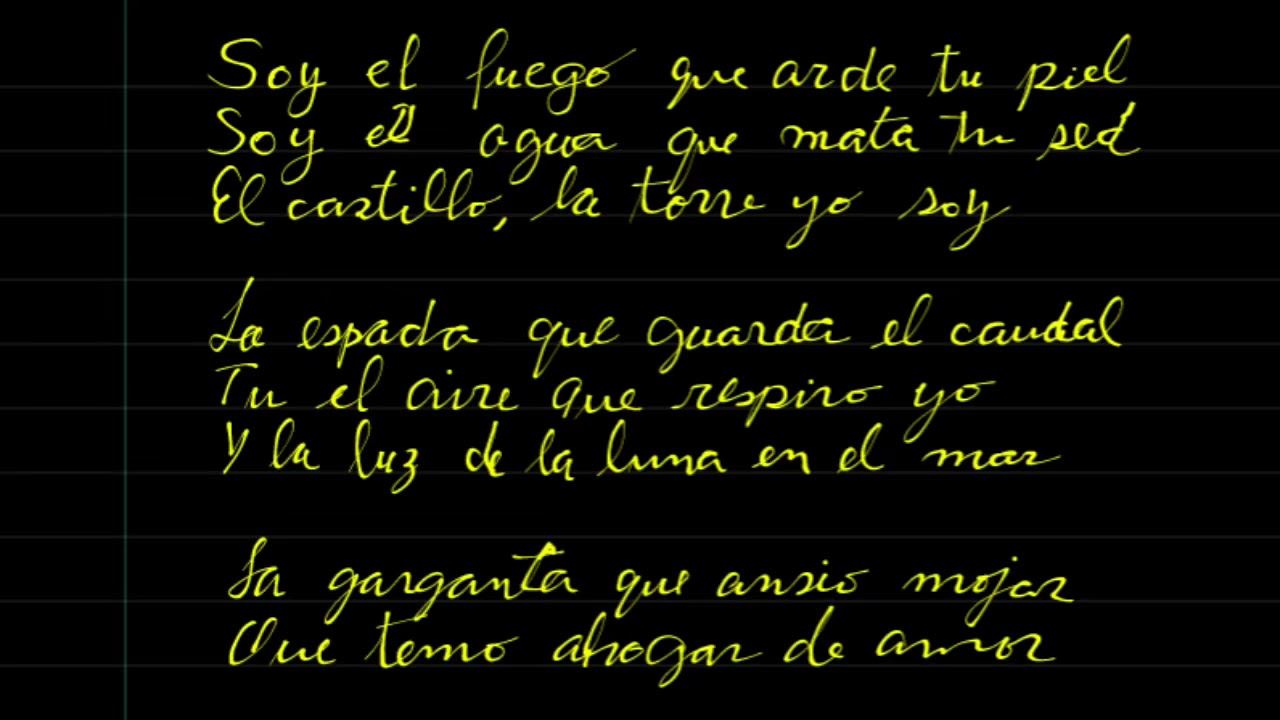 Soy el fuego que arde tu piel
Soy el agua que mata tu sed
El castillo, la torre yo soy
La espada que guarda el caudal
Tu el aire que respiro yo
Y la luz de la luna en el mar
La garganta que ansio mojar
Que temo ahogar de amor